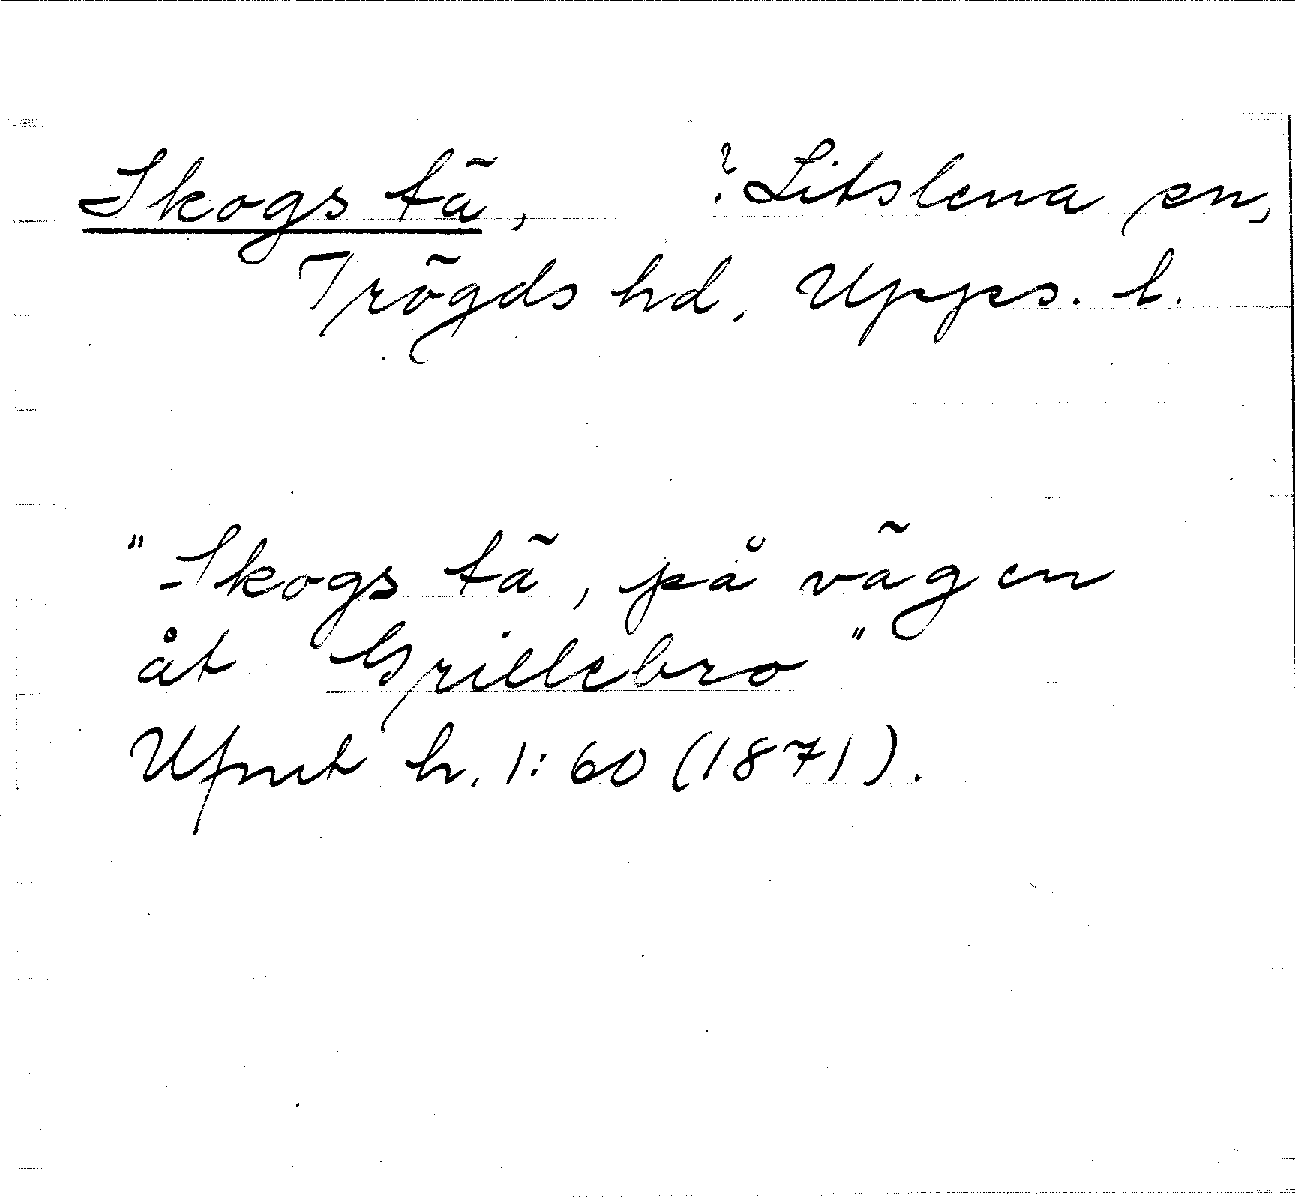 Skogs tä, ? Litslena sn,
Trögds hd, Upps. l.
"Skogs tä, på vägen
åt Grillebro"
Ufmt h. 1:60 (1871).